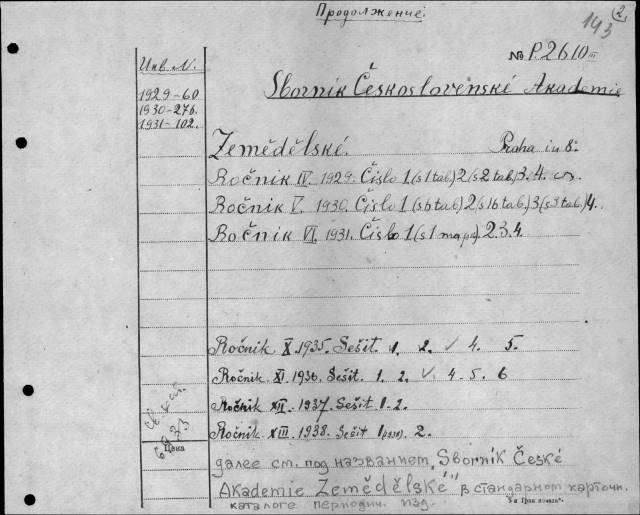 Продолжение.
143 (2)
Инв. N.
№ P.2610 III
1929-60
1930-276.
1931-102.
Sborník Československé Akademie
Zemědělské. Praha in 8º
Ročník IV. 1929. Číslo 1 (s 1 tab.) 2 (s 2 tab.) 3. 4.
Ročník V. 1930. Číslo 1 (s 6 tab.) 2 (s 16 tab.) 3 (s 3 tab.) 4.
Ročník VI. 1931. Číslo 1 (s 1 map.) 2. 3. 4
Ročník X. 1935. Sešit. 1. 2. √ 4. 5.
Ročník XI. 1936. Sešit. 1. 2. √. 4-5. 6
Ročník XII. 1937. Sešit 1-2.
Ročník XIII. 1938. Sešit 1 2.
Цена
далее см. под названием „Sborník České
Akademie Zemědělské" в стандартном карточн.
каталоге периодич. изд.